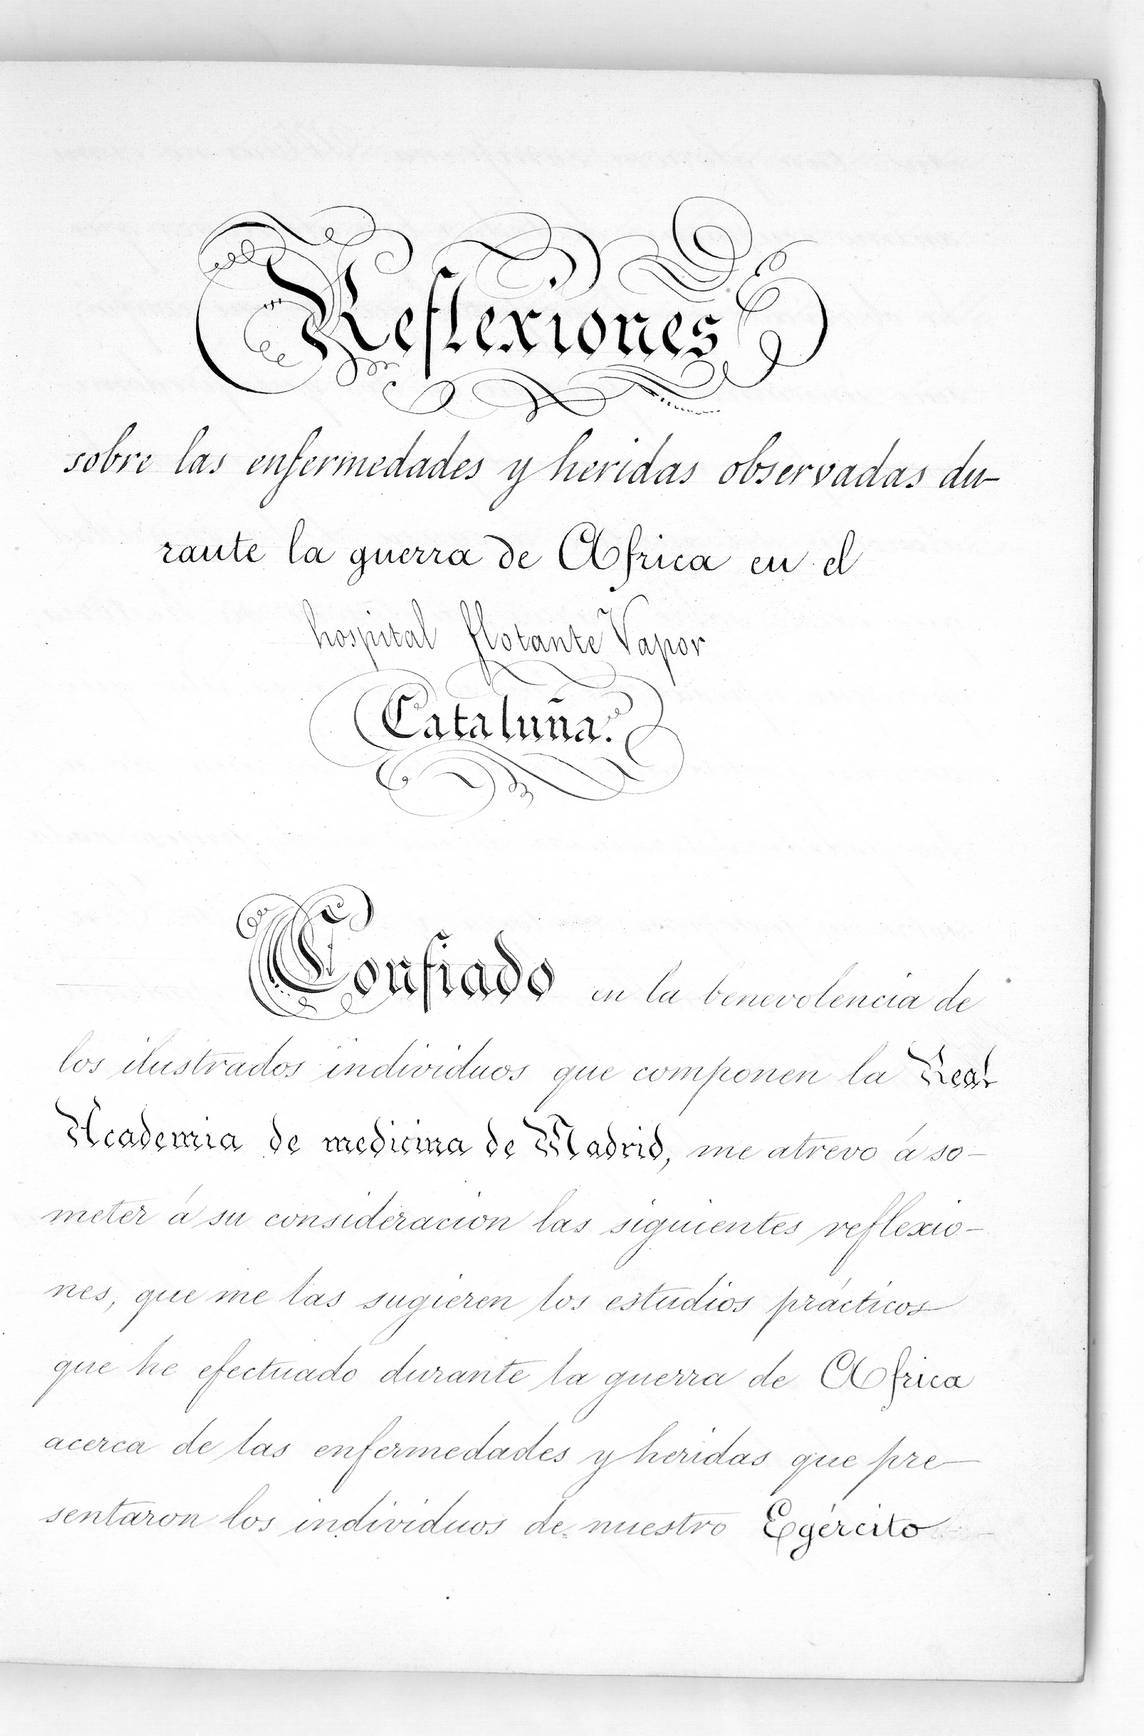 Reflexiones
sobre las enfermedades y heridas observadas du-
rante la guerra de Africa en el
hospital flotante Vapor
Cataluña.
Confiado en la benevolencia de
los ilustrados individuos que componen la Real
Academia de medicina de Madrid, me atrevo á so-
meter á su consideracion las siguientes reflexio-
nes, que me las sugieren los estudios prácticos
que he efectuado durante la guerra de Africa
acerca de las enfermedades y heridas que pre-
sentaron los individuos de nuestro Egército